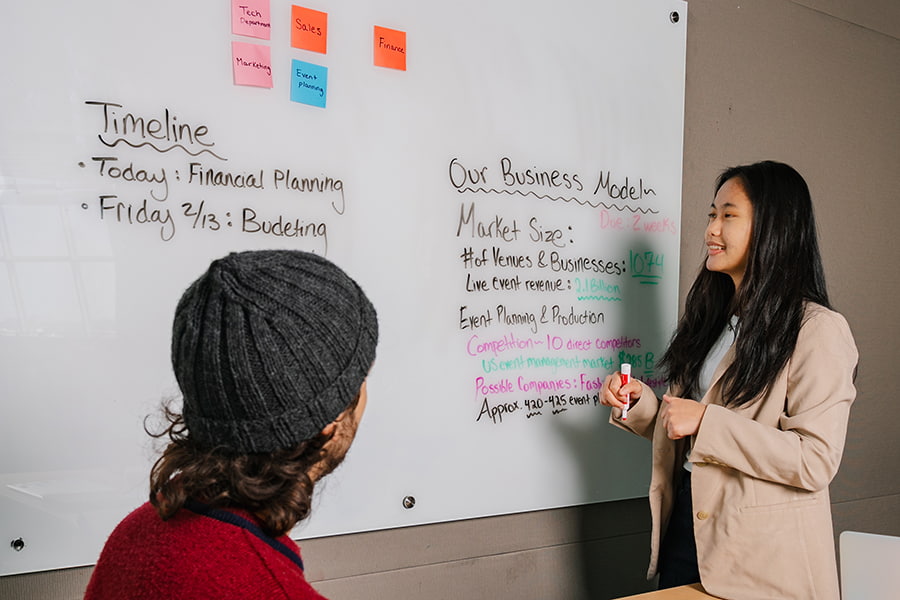 Tech
Department
Sales
Finance
Marketing
Event
planning
Timeline
• Today: Financial Planning
• Friday 2/13: Budeting
Our Business Model
Due: 2 weeks
Market Size:
# of Venues & Businesses: 1074
Live event revenue: 2.1 Billion
Event Planning & Production
Competition ~ 10 direct competitors
US event management market B
Possible Companies:
Approx. 420-425 event